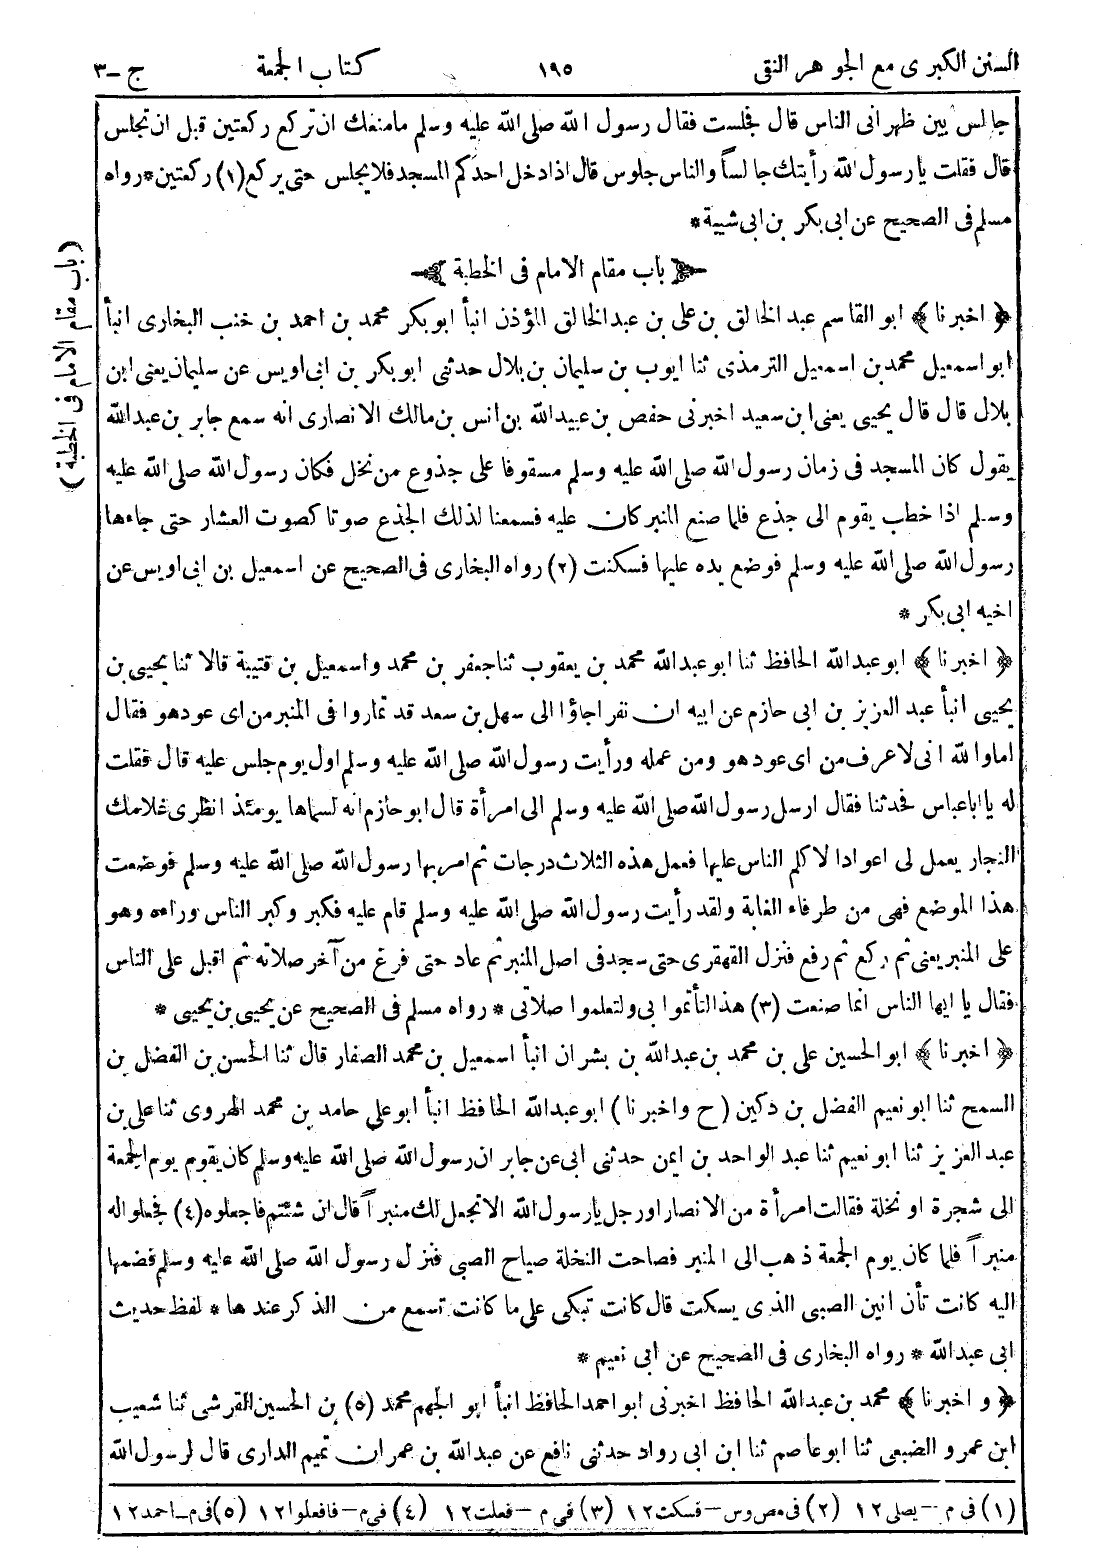 السنن الكبرى مع الجوهر النقى ١٩٥ كتاب الجمعة ج-٣
جالس بين ظهرانى الناس قال فجلست فقال رسول الله صلى الله عليه وسلم مامنعك ان تركع ركعتين قبل ان تجلس
قال فقلت يارسول الله رأيتك جالساً والناس جلوس قال اذا دخل احدكم المسجد فلايجلس حتى يركع(١) ركعتين*رواه
مسلم فى الصحيح عن ابى بكر بن ابى شيبة*
باب مقام الامام فى الخطبة
(باب مقام الامام فى الخطبة)
﴿ اخبرنا ﴾ ابو القاسم عبد الخالق بن على بن عبد الخالق المؤذن انبأ ابوبكر محمد بن احمد بن خنب البخارى انبأ
ابو اسمعيل محمد بن اسمعيل الترمذى ثنا ايوب بن سليمان بن بلال حدثنى ابوبكر بن ابى اويس عن سليمان يعنى ابن
بلال قال قال يحيى يعنى ابن سعيد اخبرنى حفص بن عبيدالله بن انس بن مالك الانصارى انه سمع جابر بن عبدالله
يقول كان المسجد فى زمان رسول الله صلى الله عليه وسلم مسقوفا على جذوع من نخل فكان رسول الله صلى الله عليه
وسلم اذا خطب يقوم الى جذع فلما صنع المنبر كان عليه فسمعنا لذلك الجذع صوتا كصوت العشار حتى جاءها
رسول الله صلى الله عليه وسلم فوضع يده عليها فسكنت (٢) رواه البخارى فى الصحيح عن اسمعيل بن ابى اويس عن
اخيه ابى بكر *
﴿ اخبرنا ﴾ ابو عبدالله الحافظ ثنا ابو عبدالله محمد بن يعقوب ثنا جعفر بن محمد واسمعيل بن قتيبة قالا ثنا يحيى بن
يحيى انبأ عبد العزيز بن ابى حازم عن ابيه ان نفرا جاؤا الى سهل بن سعد قد تماروا فى المنبر من اى عود هو فقال
اما والله انى لاعرف من اى عود هو ومن عمله ورأيت رسول الله صلى الله عليه وسلم اول يوم جلس عليه قال فقلت
له يا اباعباس فحدثنا فقال ارسل رسول الله صلى الله عليه وسلم الى امرأة قال ابو حازم انه لسماها يومئذ انظرى غلامك
النجار يعمل لى اعوادا لاكلم الناس عليها فعمل هذه الثلاث درجات ثم امر بها رسول الله صلى الله عليه وسلم فوضعت
هذا الموضع فهى من طرفاء الغابة ولقد رأيت رسول الله صلى الله عليه وسلم قام عليه فكبر وكبر الناس وراءه وهو
على المنبر يعنى ثم ركع ثم رفع فنزل القهقرى حتى سجد فى اصل المنبر ثم عاد حتى فرغ من آخر صلاته ثم اقبل على الناس
فقال يا ايها الناس انما صنعت (٣) هذا لتأتموا بى ولتعلموا صلاتى * رواه مسلم فى الصحيح عن يحيى بن يحيى *
﴿ اخبرنا ﴾ ابو الحسين على بن محمد بن عبدالله بن بشران انبأ اسمعيل بن محمد الصفار قال ثنا الحسن بن الفضل بن
السمح ثنا ابو نعيم الفضل بن دكين (ح واخبرنا) ابو عبدالله الحافظ انبأ ابو على حامد بن محمد الهروى ثنا على بن
عبد العزيز ثنا ابو نعيم ثنا عبد الواحد بن ايمن حدثنى ابى عن جابر ان رسول الله صلى الله عليه وسلم كان يقوم يوم الجمعة
الى شجرة او نخلة فقالت امرأة من الانصار او رجل يارسول الله الانجعل لك منبراً قال ان شئتم فاجعلوه(٤) فجعلوا له
منبراً فلما كان يوم الجمعة ذهب الى المنبر فصاحت النخلة صياح الصبى فنزل رسول الله صلى الله عليه وسلم فضمها
اليه كانت تأن انين الصبى الذى يسكت قال كانت تبكى على ما كانت تسمع من الذكر عندها * لفظ حديث
ابى عبدالله * رواه البخارى فى الصحيح عن ابى نعيم *
﴿ و اخبرنا ﴾ محمد بن عبدالله الحافظ اخبرنى ابو احمد الحافظ انبأ ابو الجهم محمد (٥) بن الحسين القرشى ثنا شعيب
ابن عمرو الضبعى ثنا ابو عاصم ثنا ابن ابى رواد حدثنى نافع عن عبدالله بن عمر ان تميم الدارى قال لرسول الله
(١) فى م --يصلى ١٢ (٢) فى مص وس-فسكت ١٢ (٣) فى م -فعلت ١٢ (٤) فى م-فافعلوا ١٢ (٥) فى م-احمد ١٢